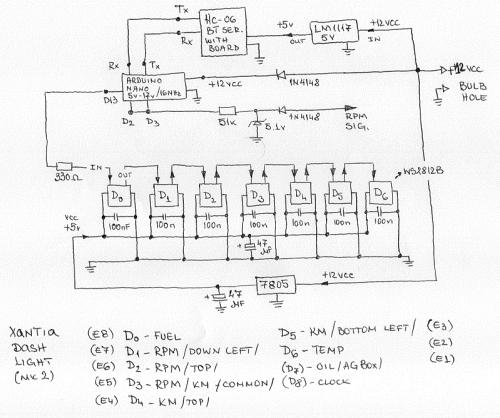 Tx
HC-06
BT SER.
WITH
BOARD
Rx
+5V
OUT
LM1117
5V
+12VCC
IN
Rx
Tx
ARDUINO
NANO
5V-17V/16MHz
D13
D2
D3
+12VCC
1N4148
+12VCC
BULB
HOLE
51K
5.1V
1N4148
RPM
SIG.
330Ω
IN
OUT
D0
D1
D2
D3
D4
D5
D6
WS2812B
VCC
+5V
100nF
100n
100n
100n
100n
100n
100n
+
47
MF
+
47
MF
7805
+12VCC
XANTIA
DASH
LIGHT
(MK2)
(E8) D0 - FUEL
(E7) D1 - RPM/DOWN LEFT/
(E6) D2 - RPM/TOP/
(E5) D3 - RPM/KM/COMMON/
(E4) D4 - KM/TOP/
D5 - KM/BOTTOM LEFT/ (E3)
D6 - TEMP (E2)
(D7) - OIL/AGBOX/ (E1)
(D8) - CLOCK